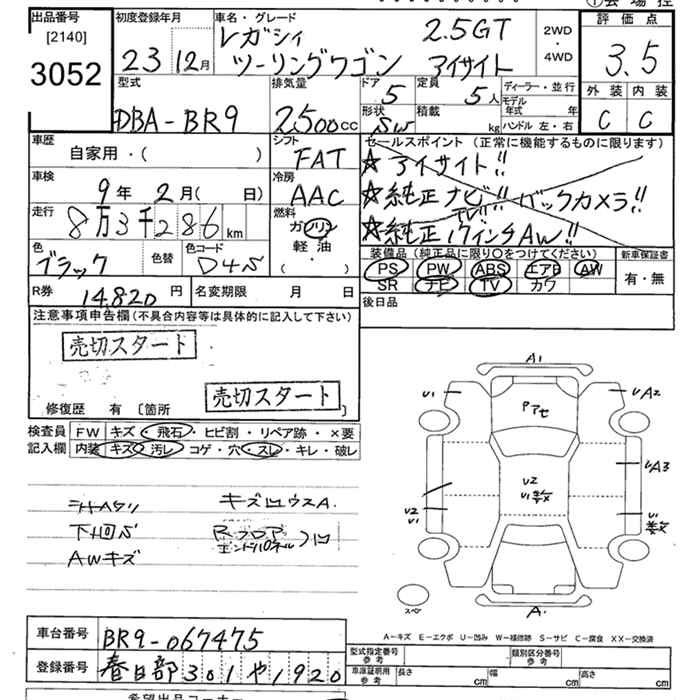 ①会場控
出品番号
[2140]
3052
初度登録年月
23 12月
車名・グレード
レガシィ 2.5GT
ツーリングワゴン アイサイト
2WD
・
4WD
評価点
3.5
外装 内装
C C
型式
DBA-BR9
排気量
2500cc
ドア
5
定員
5人
形状
SW
積載
kg
ディーラー・並行
モデル年式 年
ハンドル 左・右
車歴
自家用・( )
シフト
FAT
セールスポイント(正常に機能するものに限ります)
★アイサイト!!
★純正ナビ!! バックカメラ!!
TV!!
★純正17インチAW!!
車検
9年 2月( 日)
冷房
AAC
走行
8万3千286km
燃料
ガソリン
軽油
・
( )
色
ブラック
色替
色コード
D4S
装備品(純正品に限り○をつけてください)
PS PW ABS エアB AW
SR ナビ TV カワ
新車保証書
有・無
R券 14,820円
名変期限 月 日
後日品
注意事項申告欄(不具合内容等は具体的に記入して下さい)
売切スタート
売切スタート
修復歴 有 [箇所 ]
検査員
記入欄
FW キズ・飛石・ヒビ割・リペア跡・×要
内装 キズ・汚レ・コゲ・穴・スレ・キレ・破レ
下回S
AWキズ
キズ凹ウスA.
Rフロア
エンドパネル
凹
A1
U1
UA2
アアセ
UA3
U2
U1
U2
U1多数
U1
多数
A.
スペ
A－キズ E－エクボ U－凹み W－補修跡 S－サビ C－腐食 XX－交換済
車台番号 BR9-067475
登録番号 春日部301や1920
型式指定番号
参考
類別区分番号
参考
車庫証明用
参考
長さ cm 幅 cm 高さ cm
希望出品コーナー